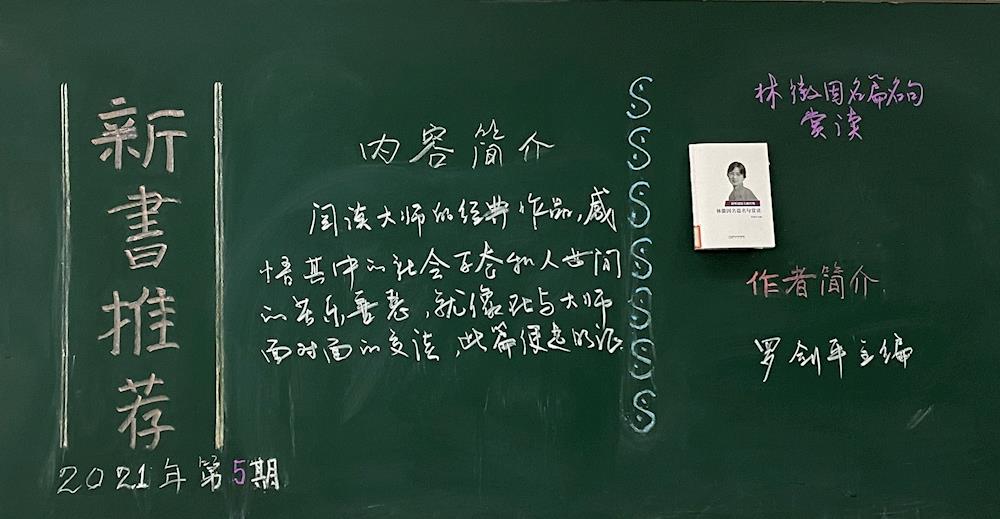 新書推荐
2021年第5期
内容简介
阅读大师的经典作品，感
悟其中的社会百态和人世间
的苦乐善恶，就像在与大师
面对面的交谈，此篇便是明证
SSSSSSSS
林徽因名篇名句
赏读
林徽因名篇名句赏读
作者简介
罗剑平主编